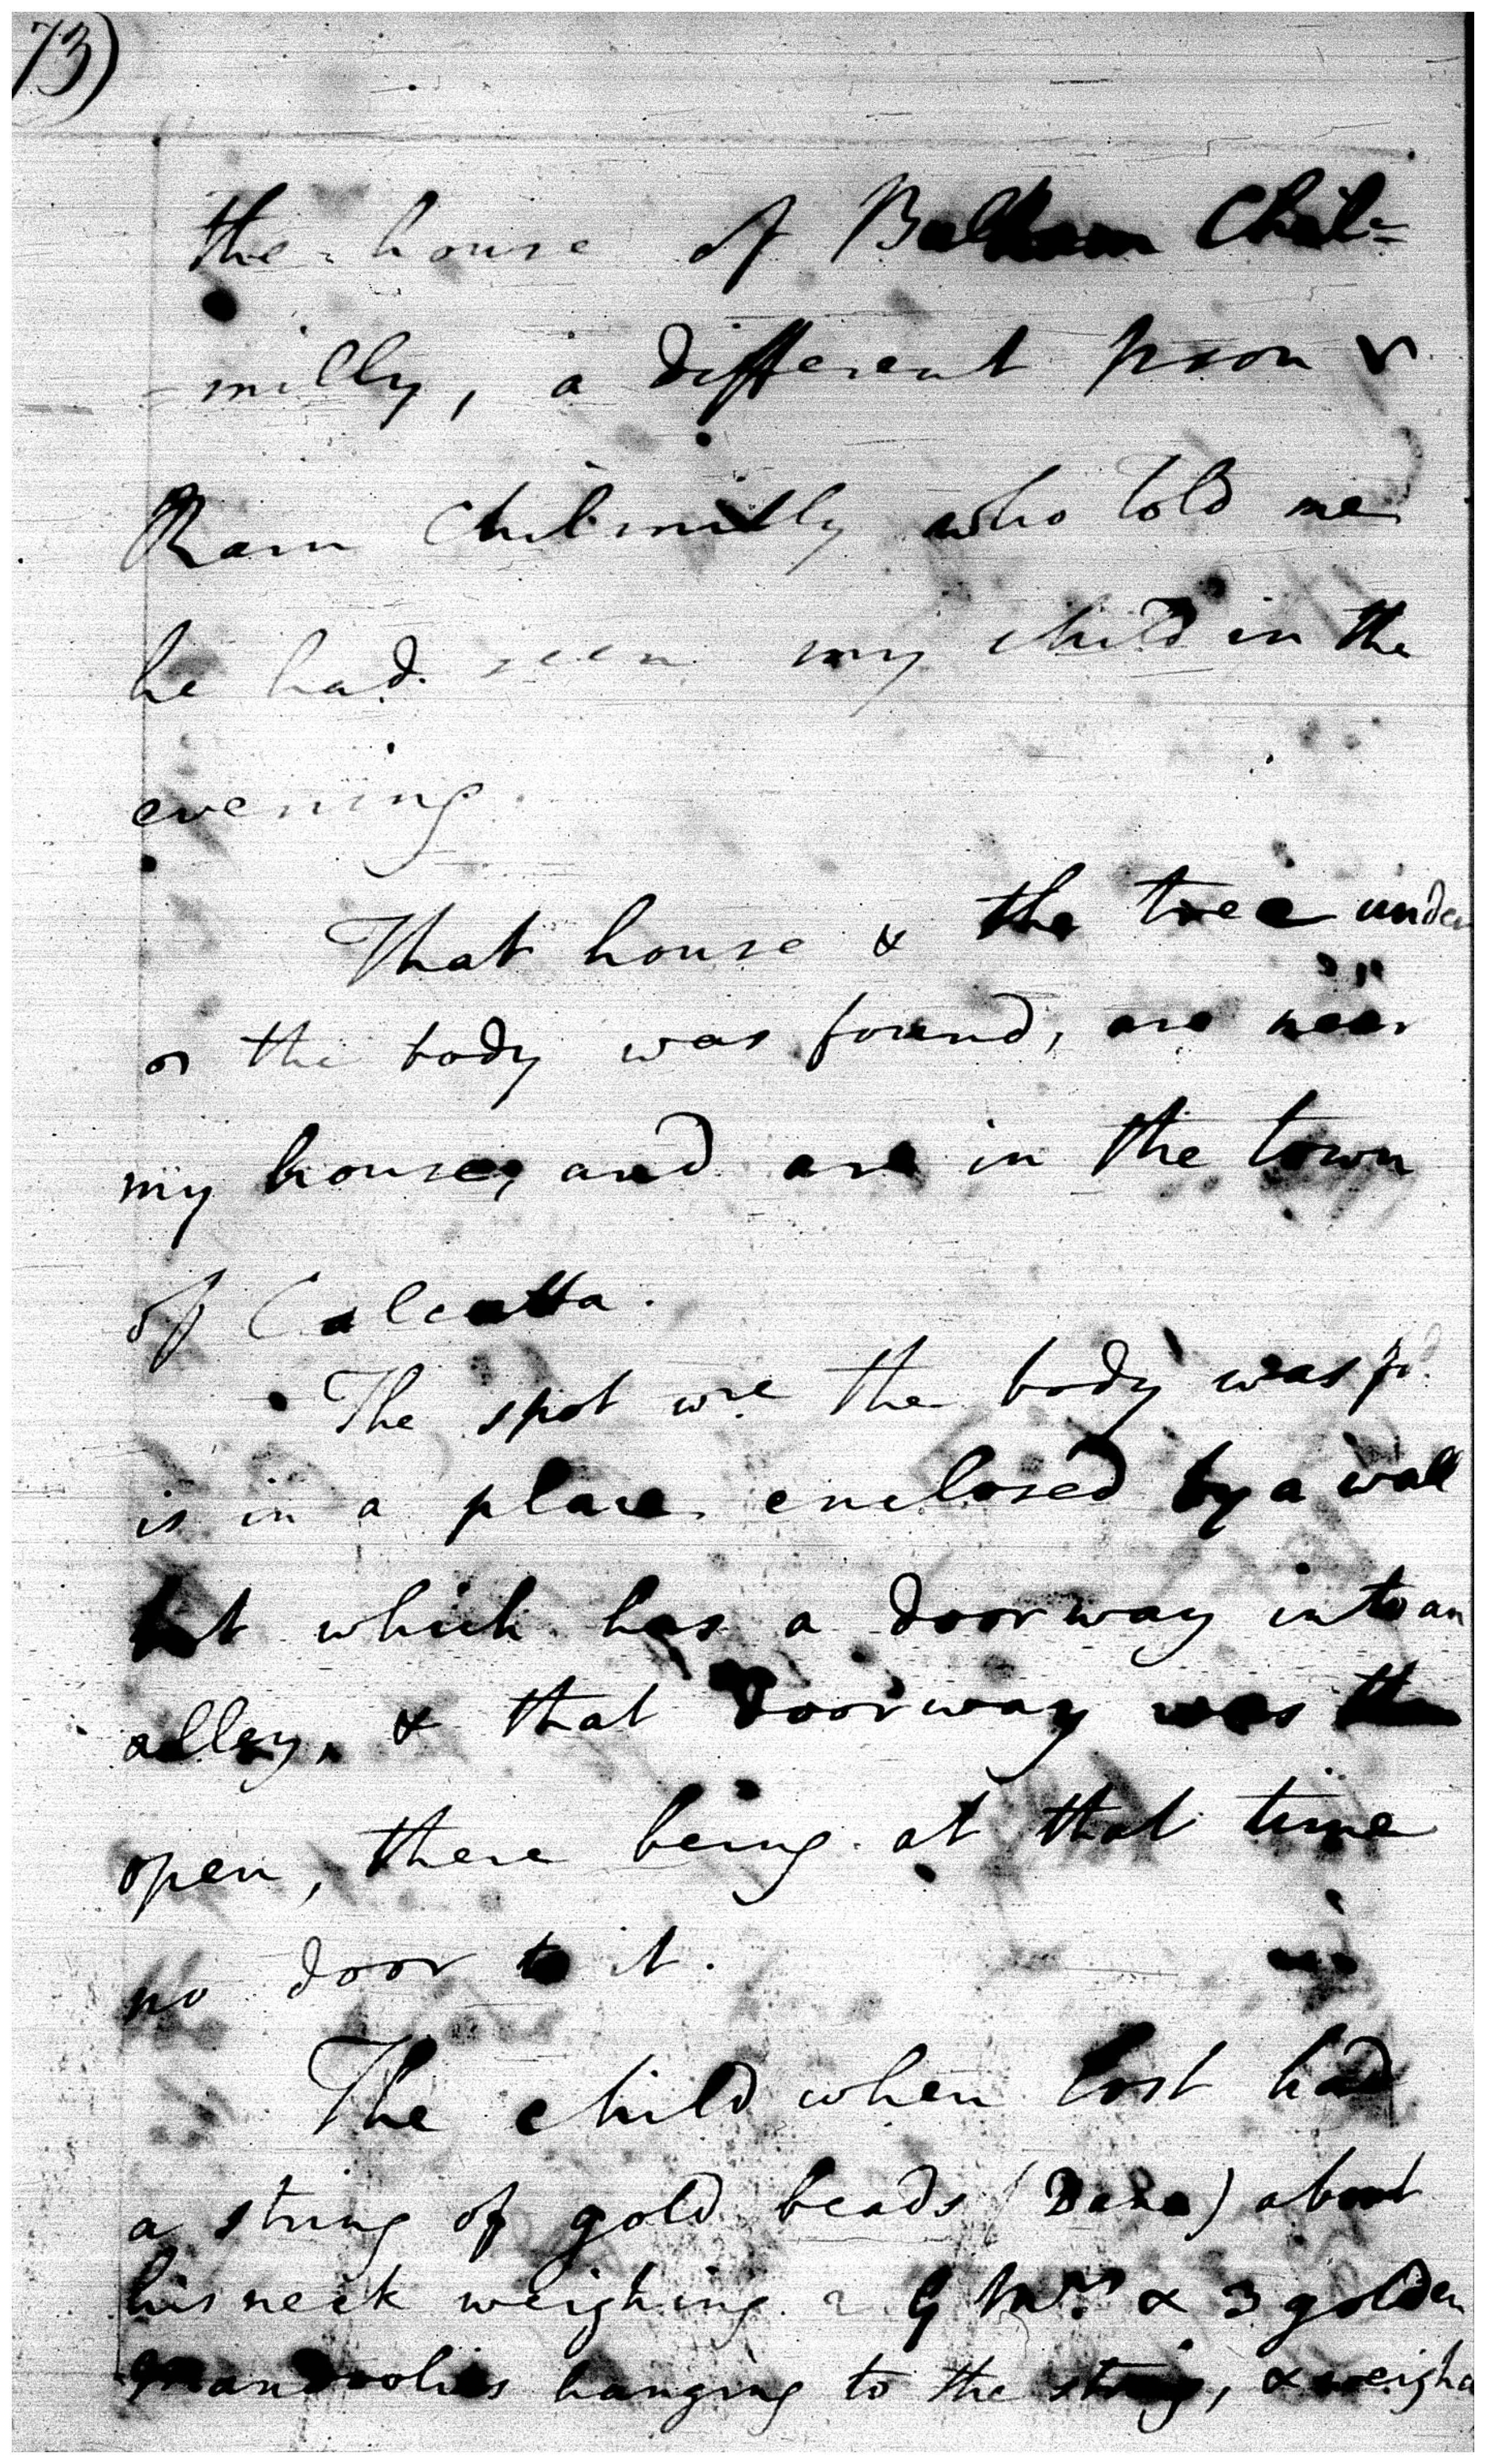 73)
the house of Chil=
=milly, a different pson
Ram Chilmilly who told me
he had seen my child in the
evening.
That house & the tree under
the body was found, are near
my house, and are in the town
of Calcutta.
The spot wre the body was fd.
is in a place enclosed by a wall
but which has a doorway into an
alley, & that doorway was then
open, there being at that time
no door to it.
The child when lost had
a string of gold beads (Dana) about
his neck weighing 2 G Mrs & 3 golden
hanging to the string, & weighg